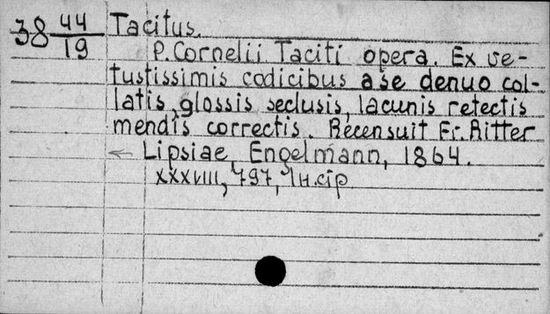 38 44/19
Tacitus.
P. Cornelii Taciti opera. Ex ve-
tustissimis codicibus a se denuo col-
latis, glossis seclusis, lacunis retectis
mendis correctis. Recensuit Fr. Ritter
← Lipsiae, Engelmann, 1864.
XXXVIII, 797, 1